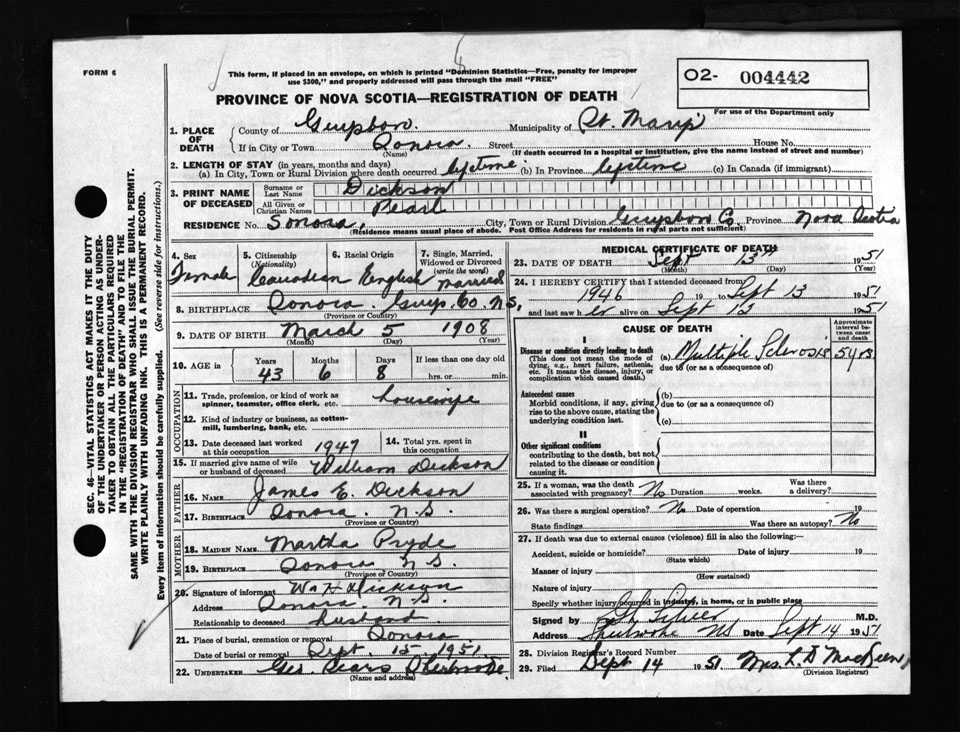 FORM 6
This form, if placed in an envelope, on which is printed "Dominion Statistics—Free, penalty for improper
use $300," and properly addressed will pass through the mail "FREE"
O2- 004442
For use of the Department only
PROVINCE OF NOVA SCOTIA—REGISTRATION OF DEATH
1. PLACE OF DEATH
County of Guysboro. Municipality of St. Mary's
If in City or Town Sonora. Street House No.
(Name) (If death occurred in a hospital or institution, give the name instead of street and number)
2. LENGTH OF STAY (in years, months and days)
(a) In City, Town or Rural Division where death occurred lifetime (b) In Province lifetime (c) In Canada (if immigrant)
3. PRINT NAME OF DECEASED
Surname or Last Name Dickson
All Given or Christian Names Pearl
RESIDENCE No. Sonora, City, Town or Rural Division Guysboro Co Province Nova Scotia
(Residence means usual place of abode. Post Office Address for residents in rural parts not sufficient)
4. Sex Female
5. Citizenship (Nationality) Canadian
6. Racial Origin English
7. Single, Married, Widowed or Divorced (write the word) Married
8. BIRTHPLACE Sonora. Guys. Co. N.S.
(Province or Country)
9. DATE OF BIRTH March 5 1908
(Month) (Day) (Year)
10. AGE in Years 43 Months 6 Days 8 If less than one day old hrs. or min.
OCCUPATION
11. Trade, profession, or kind of work as
spinner, teamster, office clerk, etc. housewife
12. Kind of industry or business, as cotton-
mill, lumbering, bank, etc.
13. Date deceased last worked
at this occupation 1947
14. Total yrs. spent in
this occupation
15. If married give name of wife
or husband of deceased William Dickson
FATHER
16. NAME James E. Dickson
17. BIRTHPLACE Sonora. N.S.
(Province or Country)
MOTHER
18. MAIDEN NAME Martha Pryde
19. BIRTHPLACE Sonora N.S.
(Province or Country)
20. Signature of informant Wm H Dickson
Address Sonora N.S.
Relationship to deceased husband
21. Place of burial, cremation or removal Sonora
Date of burial or removal Sept. 15. 1951.
22. UNDERTAKER Geo. Sears Sherbrooke.
(Name and address)
MEDICAL CERTIFICATE OF DEATH
23. DATE OF DEATH Sept 13th 1951
(Month) (Day) (Year)
24. I HEREBY CERTIFY that I attended deceased from
1946 19 to Sept 13 1951
and last saw her alive on Sept 13 1951
CAUSE OF DEATH
Approximate interval between onset and death
I
Disease or condition directly leading to death
(This does not mean the mode of
dying, e.g., heart failure, asthenia,
etc. It means the disease, injury, or
complication which caused death.)
(a) Multiple Sclerosis 5 yrs
due to (or as a consequence of)
Antecedent causes
Morbid conditions, if any, giving
rise to the above cause, stating the
underlying condition last.
(b)
due to (or as a consequence of)
(c)
II
Other significant conditions
contributing to the death, but not
related to the disease or condition
causing it.
25. If a woman, was the death
associated with pregnancy? No Duration weeks. Was there a delivery?
26. Was there a surgical operation? No Date of operation 19
State findings Was there an autopsy? No
27. If death was due to external causes (violence) fill in also the following:—
Accident, suicide or homicide? Date of injury 19
(State which)
Manner of injury
(How sustained)
Nature of injury
Specify whether injury occurred in industry, in home, or in public place
Signed by M.D.
Address Sherbrooke NS Date Sept 14 1951
28. Division Registrar's Record Number
29. Filed Sept 14 1951 Mrs. L. D MacKeen
(Division Registrar)
SEC. 46—VITAL STATISTICS ACT MAKES IT THE DUTY
OF THE UNDERTAKER OR PERSON ACTING AS UNDER-
TAKER TO OBTAIN ALL THE PARTICULARS REQUIRED
IN THE "REGISTRATION OF DEATH" AND TO FILE THE
SAME WITH THE DIVISION REGISTRAR WHO SHALL ISSUE THE BURIAL PERMIT.
WRITE PLAINLY WITH UNFADING INK. THIS IS A PERMANENT RECORD.
Every item of information should be carefully supplied. (See reverse side for instructions.)